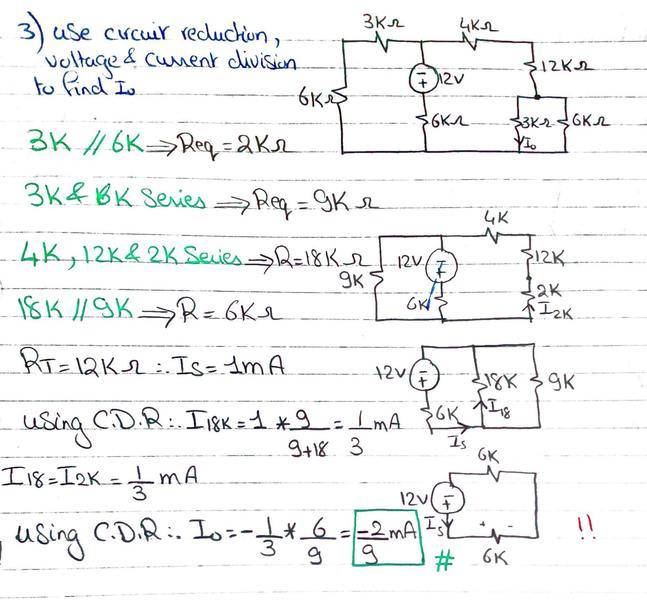 3) use circuit reduction,
voltage & current division
to find Io
3KΩ
4KΩ
12V
12KΩ
6KΩ
6KΩ
3KΩ
6KΩ
Io
3K // 6K ⟹ Req = 2KΩ
3K & 6K Series ⟹ Req = 9KΩ
4K, 12K & 2K Series ⟹ R = 18KΩ
18K // 9K ⟹ R = 6KΩ
4K
12V
9K
6K
12K
2K
I2K
RT = 12KΩ ∴ Is = 1mA
12V
18K
9K
6K
I18
Is
using C.D.R ∴ I18K = 1 * 9/9+18 = 1/3 mA
I18 = I2K = 1/3 mA
6K
12V
Is
+ -
6K
using C.D.R ∴ Io = -1/3 * 6/9 = -2/9 mA
#
!!